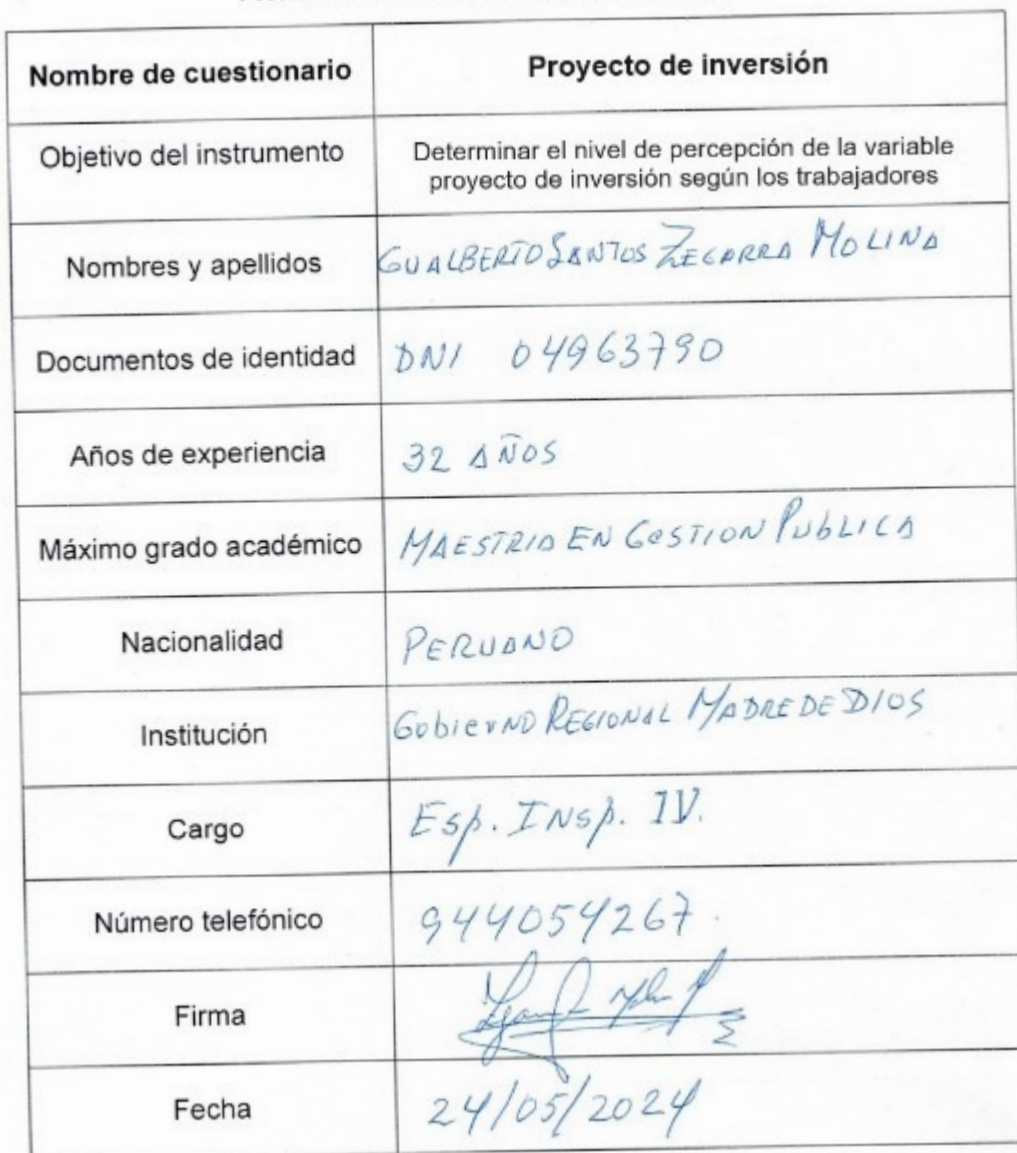 Nombre de cuestionario
Proyecto de inversión
Objetivo del instrumento
Determinar el nivel de percepción de la variable
proyecto de inversión según los trabajadores
Nombres y apellidos
GUALBERTO SANTOS ZEGARRA MOLINA
Documentos de identidad
DNI 04963790
Años de experiencia
32 AÑOS
Máximo grado académico
MAESTRIA EN GeSTION PUbLICA
Nacionalidad
PERUANO
Institución
GObIerNO REGIONAL MADRE DE DIOS
Cargo
Esp. INsp. IV.
Número telefónico
944054267.
Firma
Fecha
24/05/2024